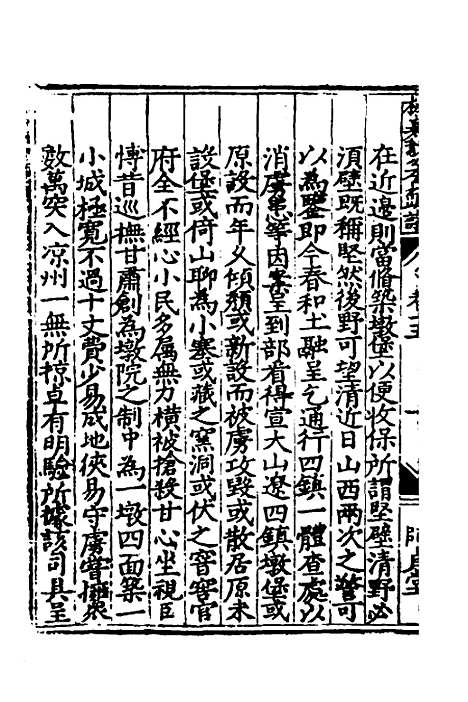 在近邊則當脩築墩堡以便收保所謂堅壁清野必
須壁既稱堅然後野可望清近日山西兩次之警可
以為鑒即今春和土融呈乞通行四鎮一體查處以
消虜患等因案呈到部看得宣大山遼四鎮墩堡或
原設而年久傾頹或新設而被虜攻毀或散居原未
設堡或倚山聊為小寨或藏之窯洞或伏之窨窖官
府全不經心小民多属無力横被搶殺甘心坐視臣
愽昔巡撫甘肅創為墩院之制中為一墩四面築一
小城極寬不過十丈費少易成地俠易守虜嘗擁衆
數萬突入凉州一無所掠卓有明驗所據該司具呈